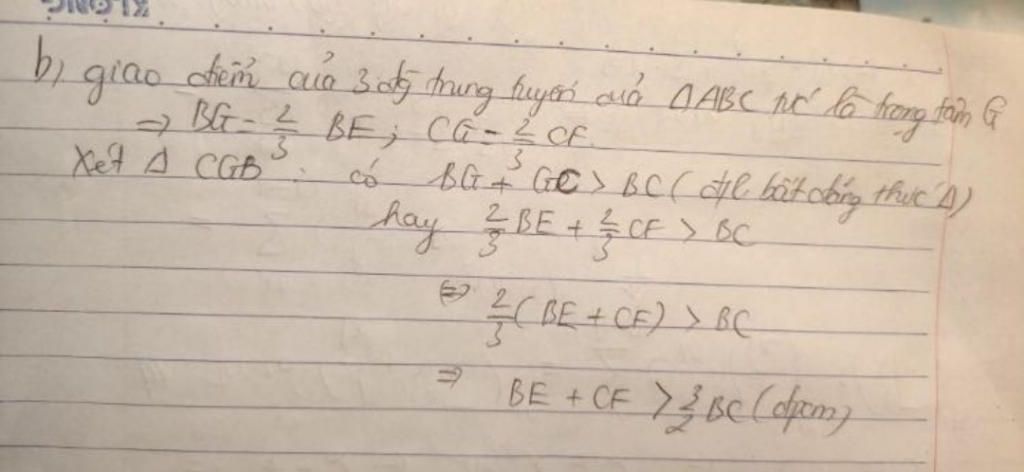 b, giao điểm của 3 đg trung tuyến của ΔABC tức là trọng tâm G
⇒ BG = 2/3 BE; CG = 2/3 CF.
Xét Δ CGB : có BG + GC > BC ( đl bất đẳng thức Δ)
hay 2/3 BE + 2/3 CF > BC
⇔ 2/3 ( BE + CF) > BC
⇒ BE + CF > 3/2 BC ( đpcm)